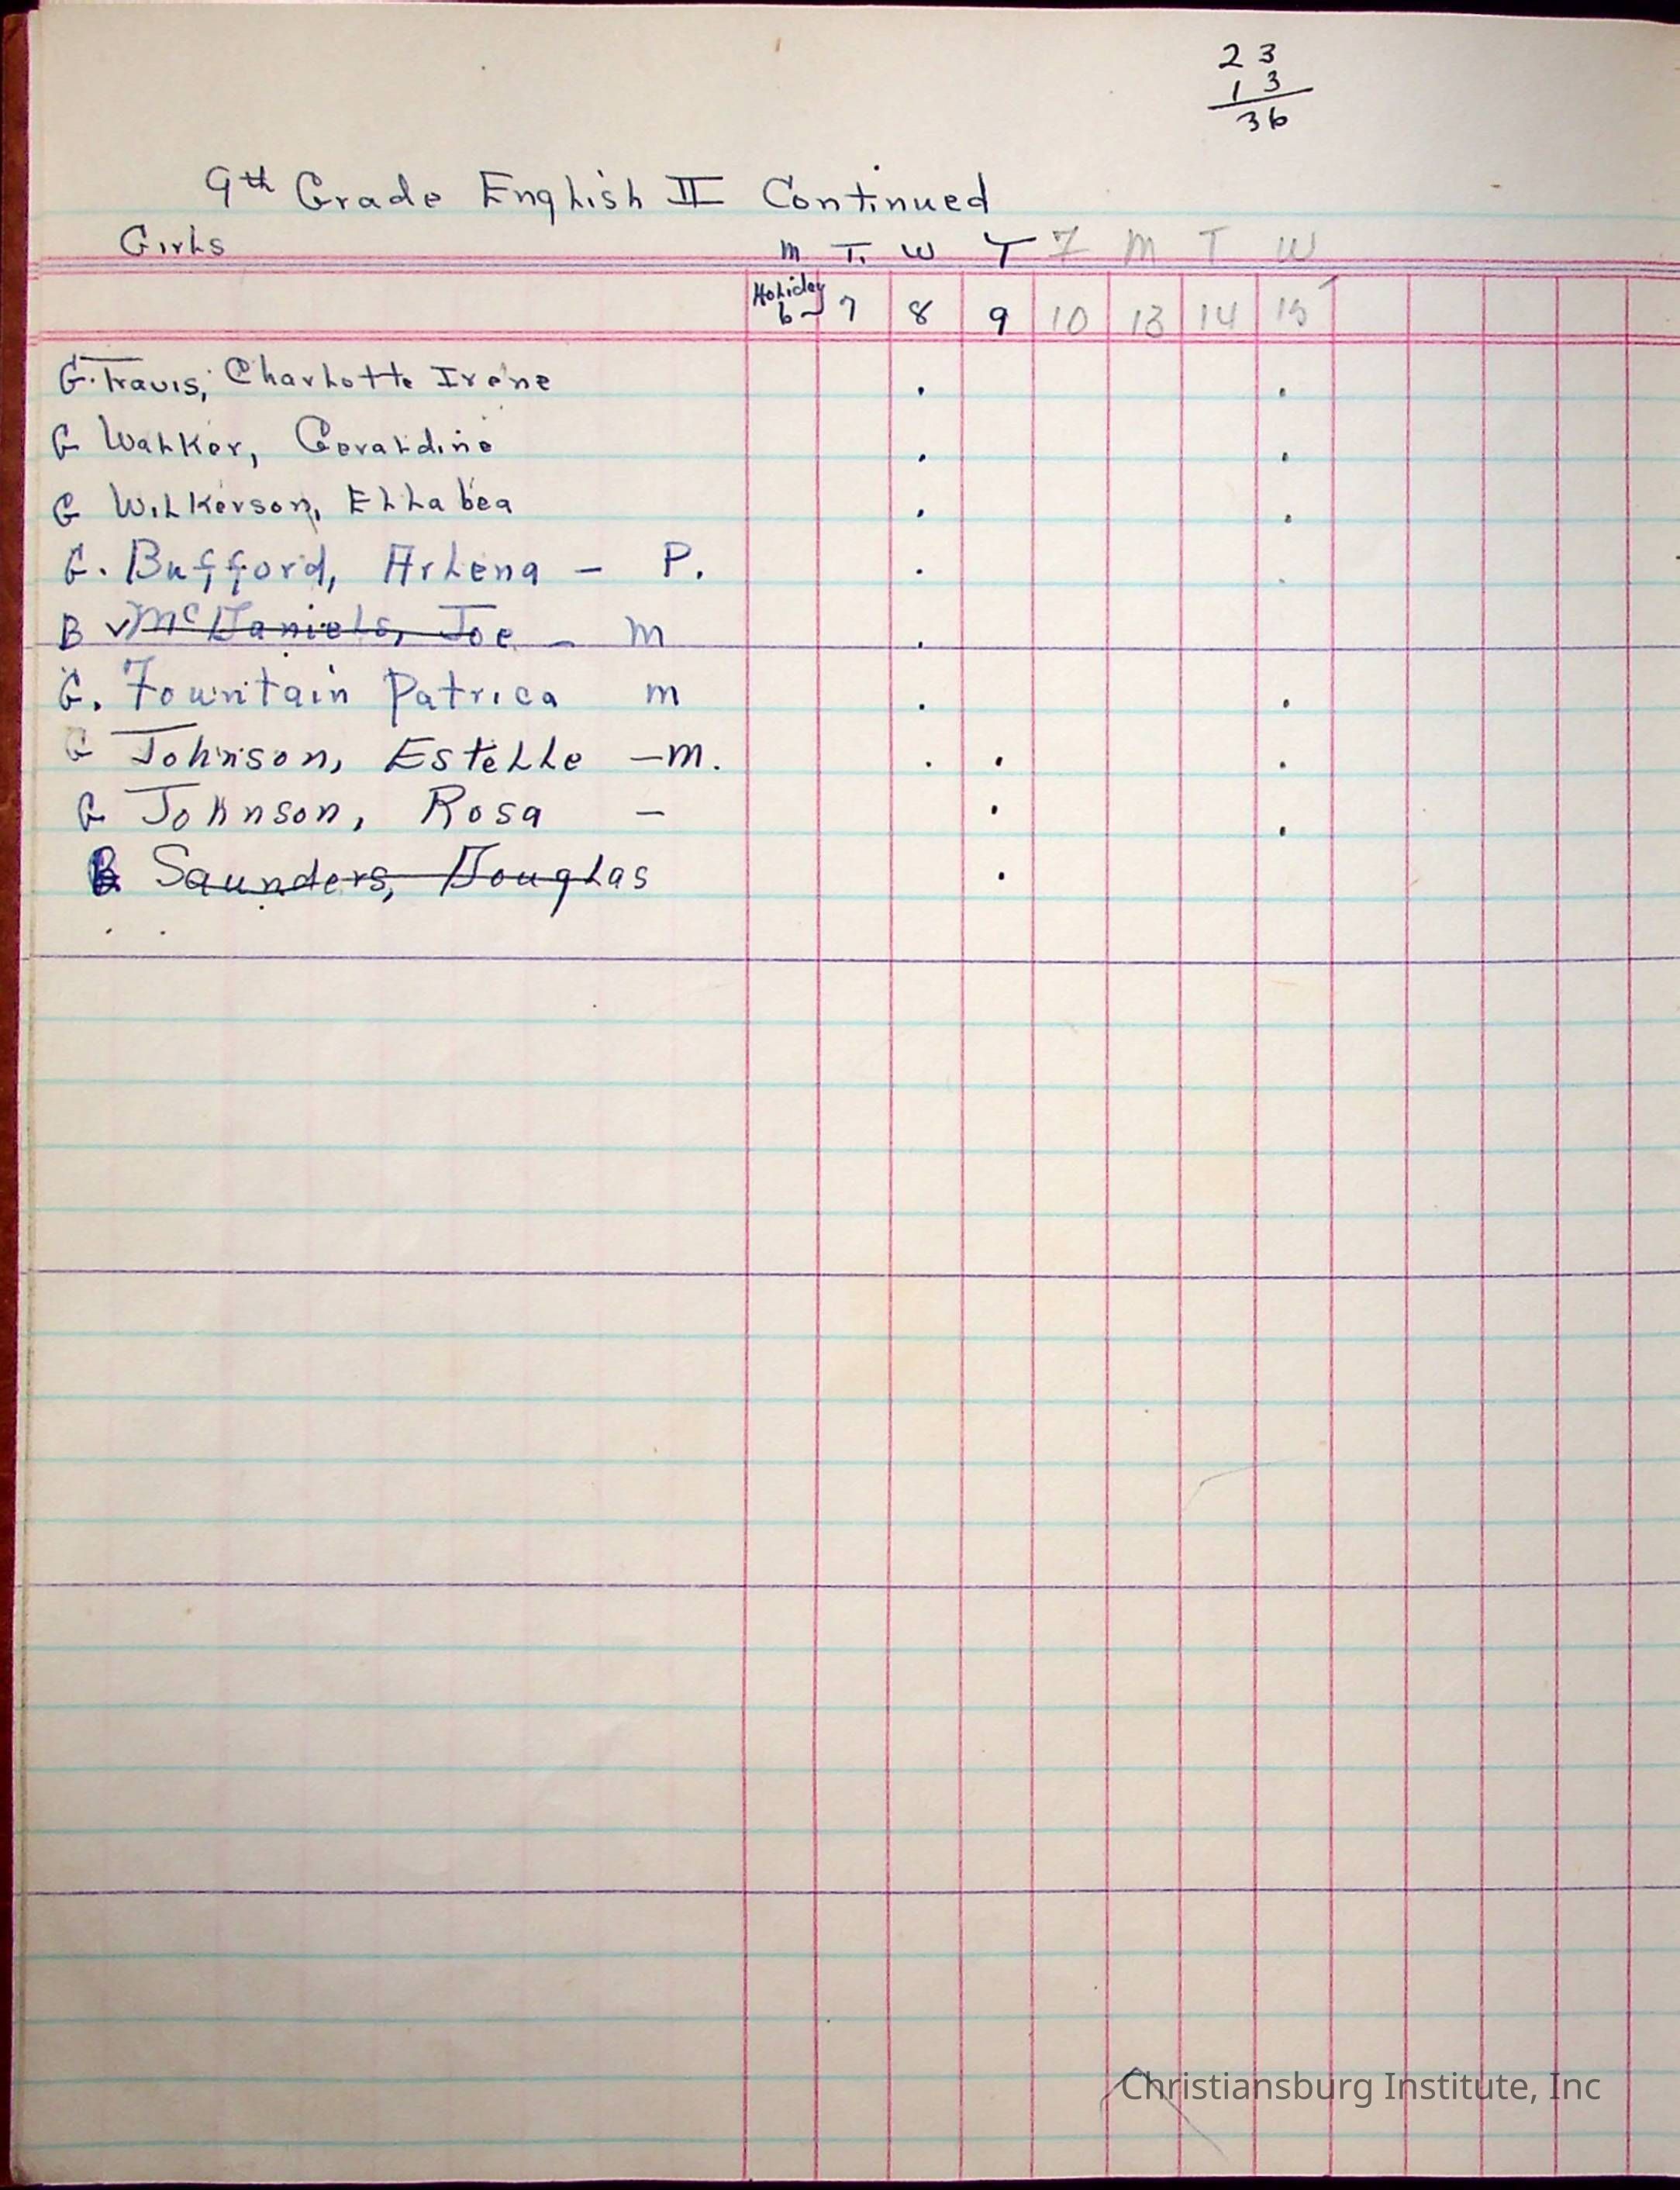 23
13
36
9th Grade English II Continued
Girls M T. W T F M T W
Holiday
6 7 8 9 10 13 14 15
G. Travis, Charlotte Irene . .
G Walker, Geraldine . .
G Wilkerson, Ellabea . .
G. Bufford, Arlena - P. . .
B ✓ McDaniels, Joe - M .
G. Fountain Patrica m . .
G Johnson, Estelle - m. . . .
G Johnson, Rosa - . .
B Saunders, Douglas .
Christiansburg Institute, Inc